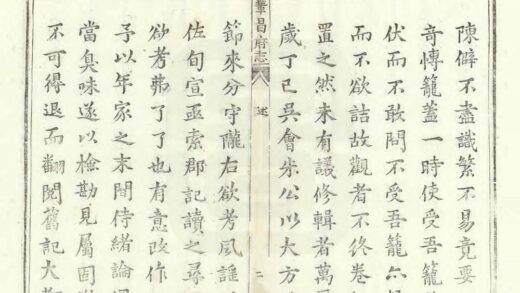 陳僻不盡識繁不易竟要
奇傳籠蓋一時使受吾籠
伏而不敢問不受吾籠亦
而不欲詰故觀者不終卷
置之然未有議修輯者萬
歲丁巳吳會朱公以大方
鞏昌府志
述
二
節來分守隴右欲考風謠
佐旬宣亟索郡記讀之尋
欲考弗了了也有意改作
予以年家之末間侍緒論
當臭味遂以檢勘見屬固
不可得退而翻閱舊記大